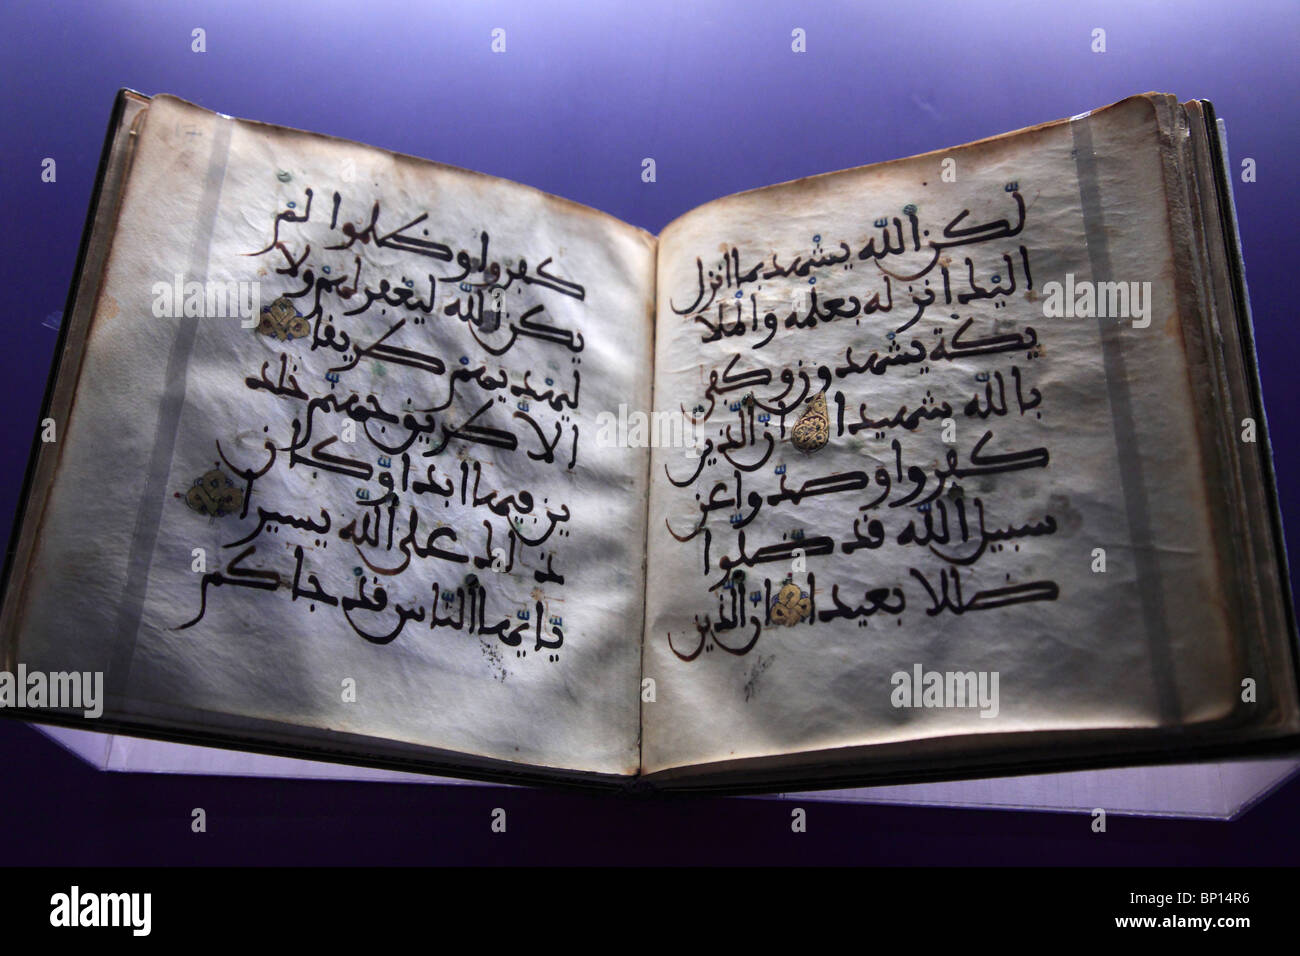 لكن الله يشهد بما انزل
اليك انزله بعلمه والملا
يكة يشهدون وكفى
بالله شهيدا ان الذين
كفروا وصدوا عن
سبيل الله قد ضلوا
ضللا بعيدا ان الذين
كفروا وظلموا لم
يكن الله ليغفر لهم ولا
ليهديهم طريقا
الا طريق جهنم خلد
ين فيها ابدا وكان
ذلك على الله يسيرا
يايها الناس قد جاكم
alamy
Image ID: BP14R6
www.alamy.com